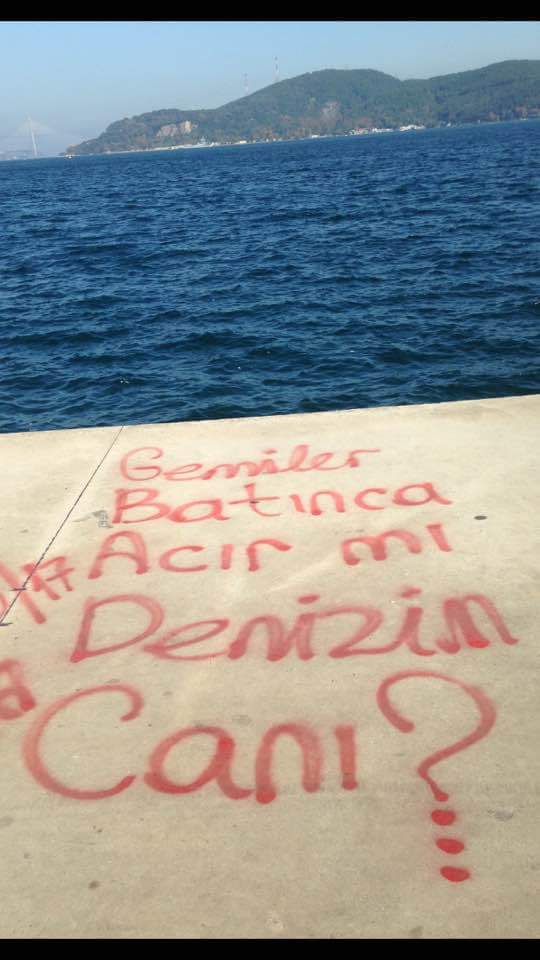 Gemiler
Batınca
Acır mı
Denizin
Canı?